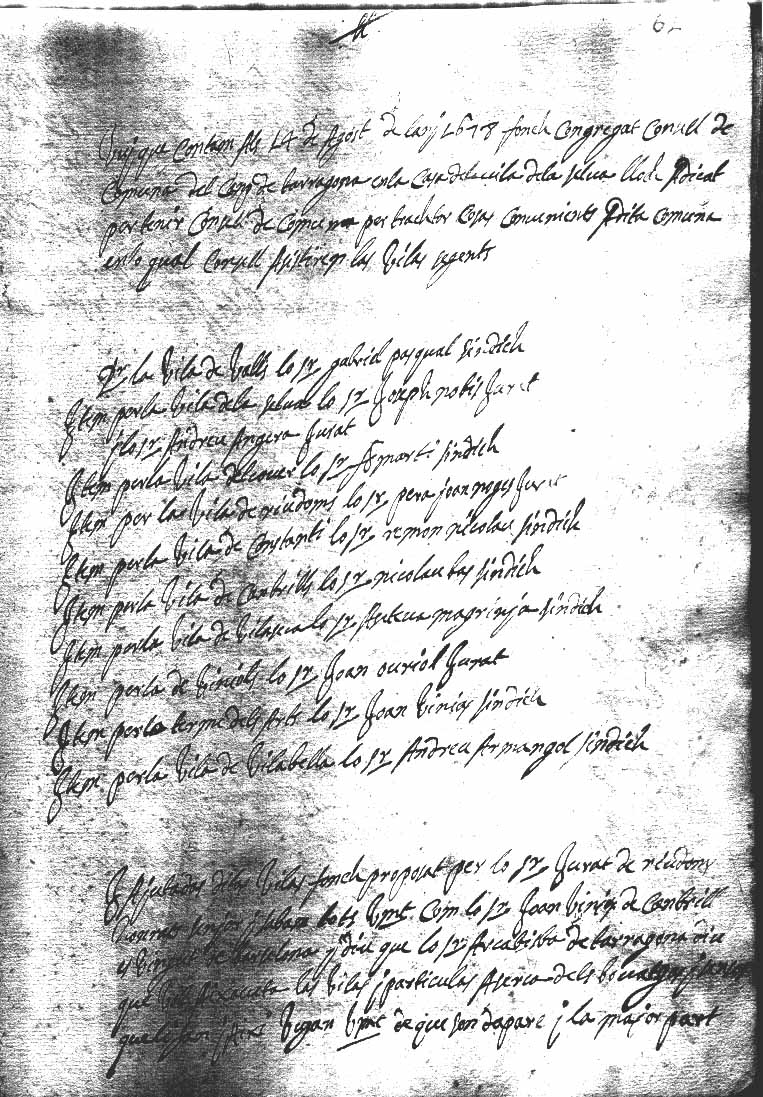 62
Vuy que Contam als 14 de Agost de lany 1678 fonch Congregat Consell de
Comuna del Camp de tarragona en la Casa de la vila de la selva lloch Adicat
per tenir Consell de Comuna per tractar Cosas Convenients A dita Comuna
en lo qual Consell Asistiren las Vilas seguents
Per la Vila de Valls lo sr gabriel pasqual sindich
Item per la Vila de la selva lo sr Joseph nobis Jurat
j lo sr Andreu Angera Jurat
Item per la Vila del cover lo sr marti sindich
Item per la Vila de riudoms lo sr pera joan noges Jurat
Item per la Vila de Constanti lo sr remon nicolau sindich
Item per la Vila de Cambrills lo sr nicolau bas sindich
Item per la Vila de Vilaseca lo sr Asteva magrinja sindich
Item per la de Vinyols lo sr Joan ouriol Jurat
Item per lo terme dels Arbs lo sr Joan Vinias sindich
Item per la Vila de Vilabella lo sr Andreu Armangol sindich
E Ajustadas ditas Vilas fonch proposat per lo sr Jurat de riudoms
tots Vmt Com lo sr Joan Vinias de Cambrill
es Vingut de Barselona j diu que lo sr Arcabisba de tarragona diu
que las Vilas j particulas Aserca dels
j Axi Vejan Vmt de que son de pare j la major part